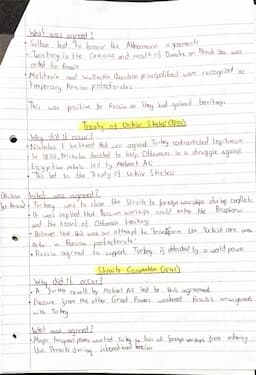 What was agreed?
• Sultan had to honour the Akkerman agreements
• Territory in the Caucasus and mouth of Danube on Black Sea was
ceded to Russia
• Moldavia and Wallachia (Danubian principalities) were recognised as
temporary Russian protectorates
This was positive to Russia as they had gained territory.
Treaty of Unkiar Skelessi (1833)
Why did it occur?
• Nicholas I believed that war against Turkey contradicted legitimism
• In 1833, Nicholas decided to help Ottomans in a struggle against
Egyptian rebels led by Mehmet Ali
• This led to the Treaty of Unkiar Skelessi
What was agreed?
• Turkey was to close the Straits to foreign warships during conflicts
• It was implied that Russian warships could enter the Bosphorus
and the heart of Ottoman territory
• Believed that this was an attempt to transform the Turkish
into a Russian protectorate
• Russia agreed to support Turkey if attacked by a world power
Straits Convention (1841)
Why did it occur?
• A revolt by Mehmet Ali led to this agreement
• Pressure from the other Great Powers weakened Russia's arrangements
with Turkey
What was agreed?
• Major European powers wanted Turkey to ban all foreign warships from entering
the Straits during international